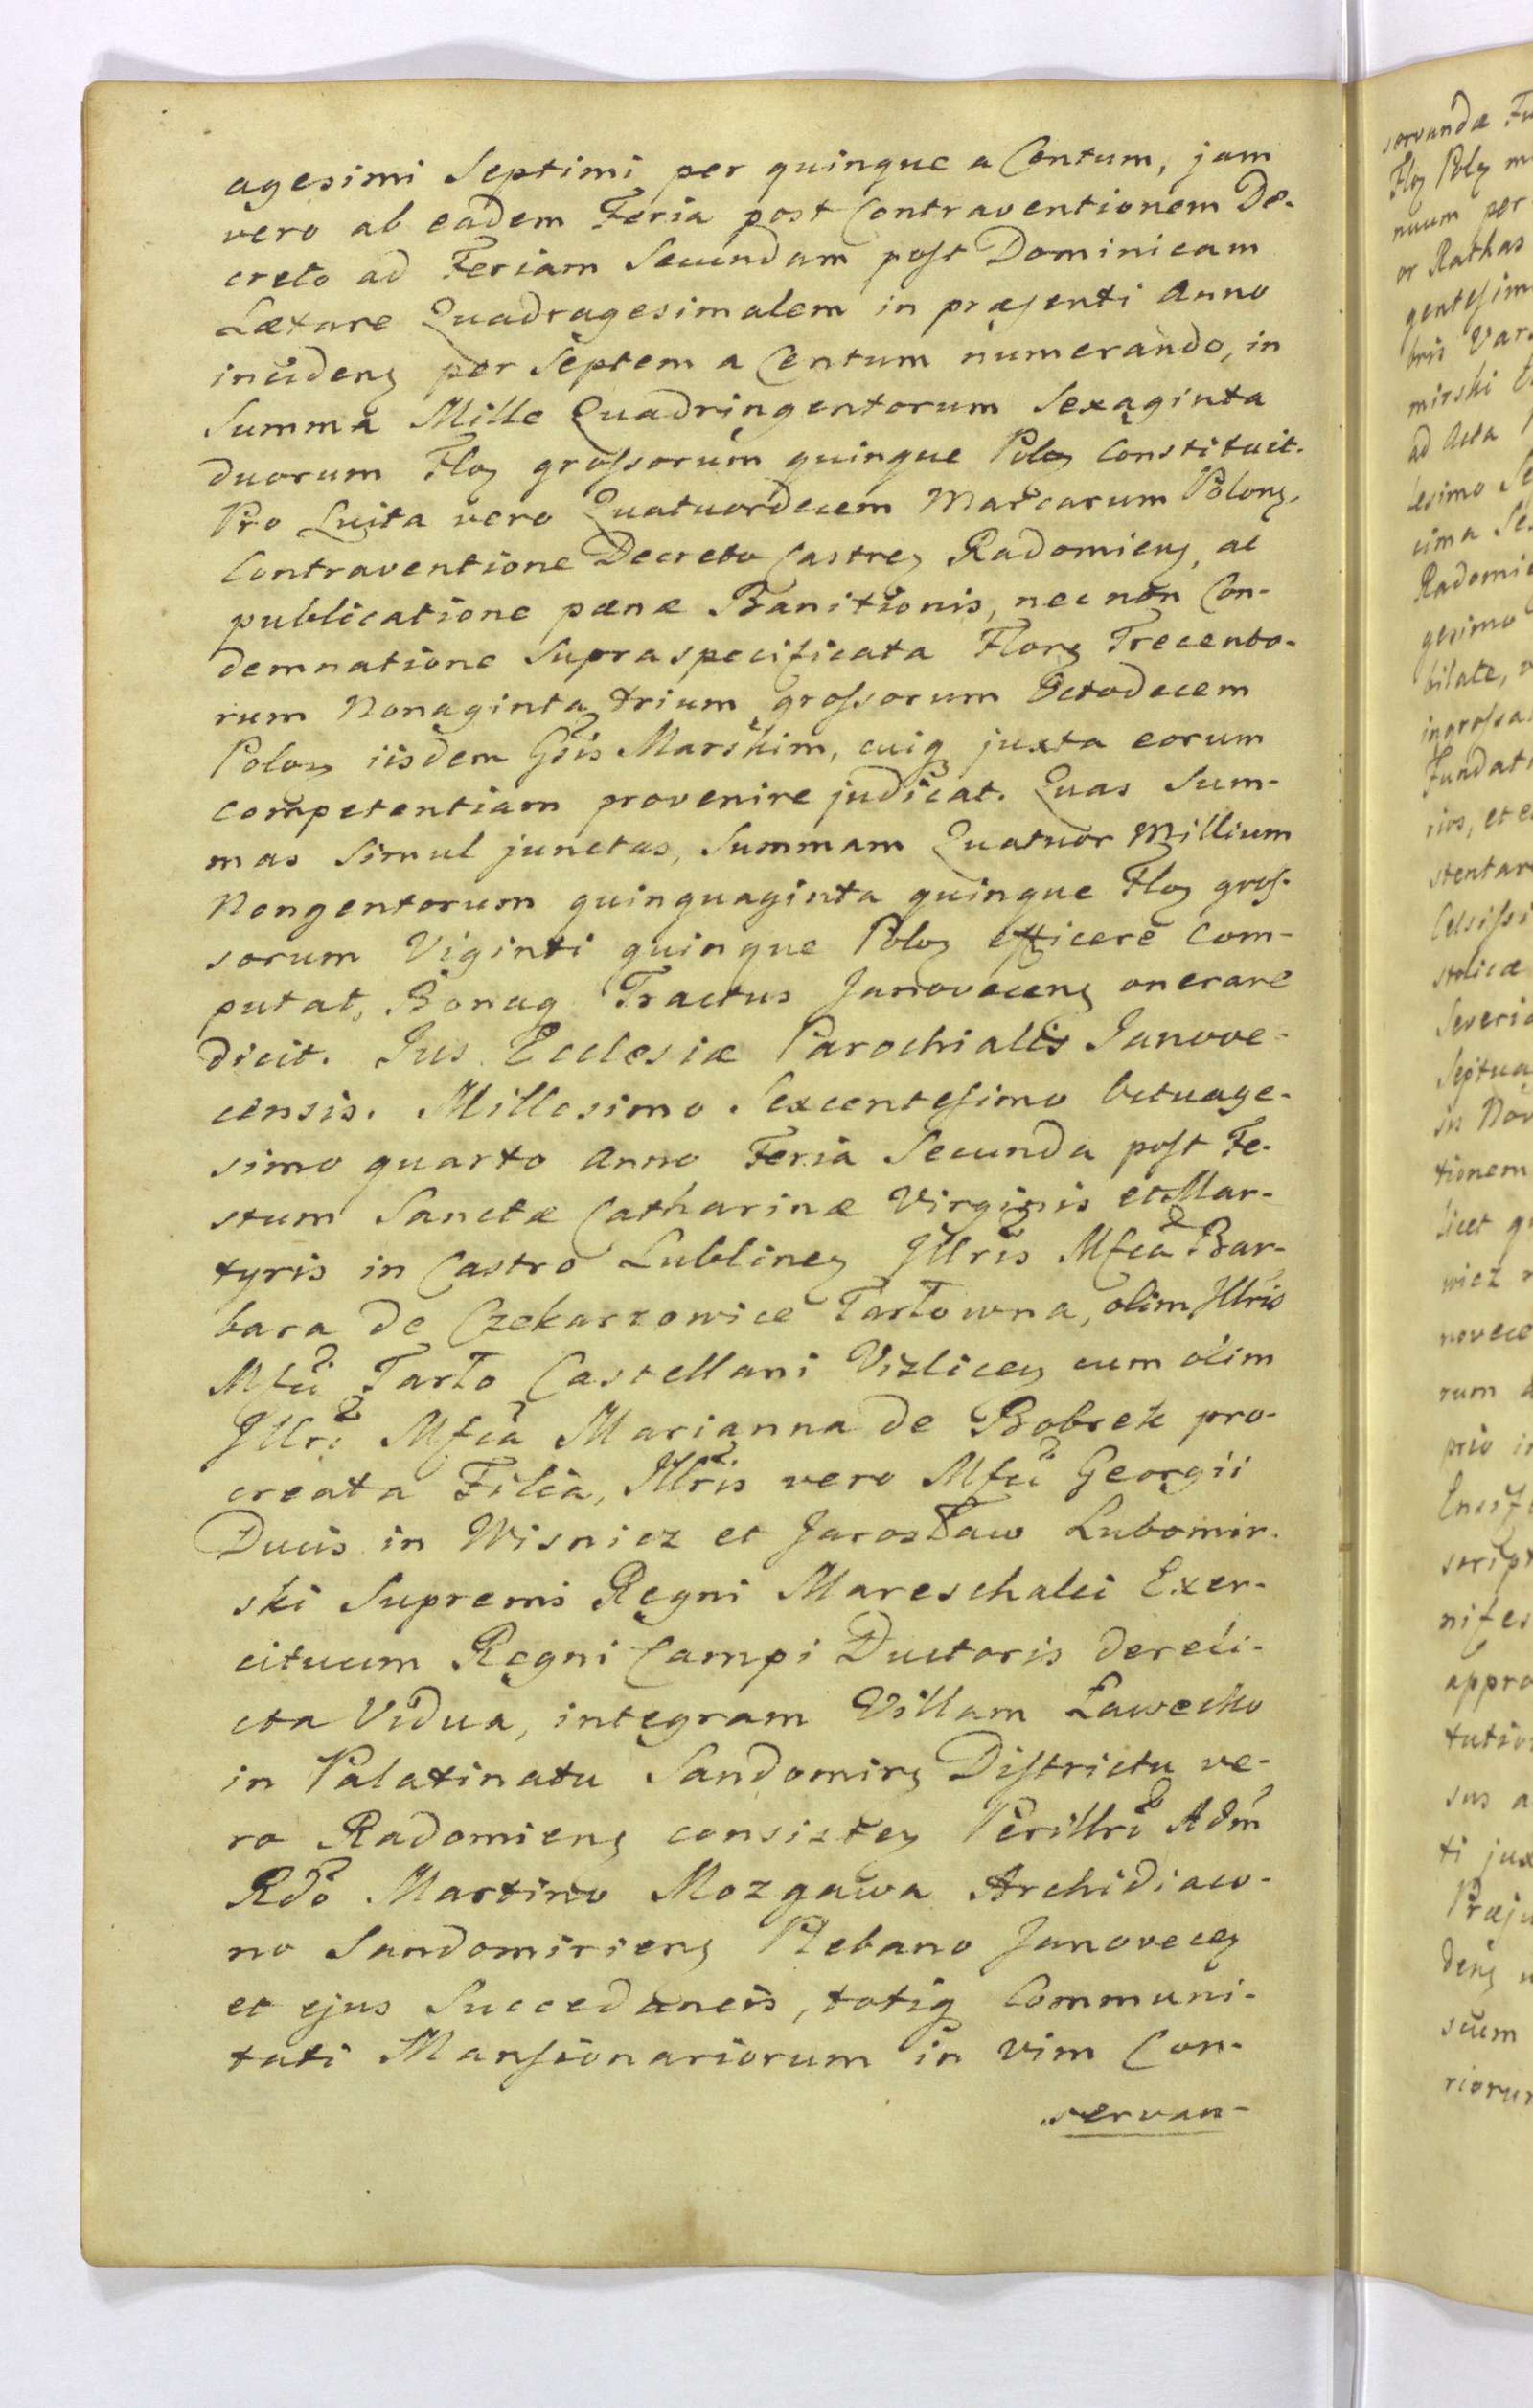 agesimi Septimi per quinque a Centum, jam
vero ab eadem Feria post Contraventionem De-
creto ad Feriam Secundam post Dominicam
Lætare Quadragesimalem in præsenti Anno
incidenꝫ per Septem a Centum numerando, in
Summa Mille Quadringentorum Sexaginta
duorum Floꝫ grossorum quinque Poloꝫ Constituit.
Pro Luita vero Quatuordecem Marcarum Polonꝫ.
Contraventione Decreto Castreꝫ Radomienꝫ, ac
publicatione pænæ Banitionis, nec non Con-
demnatione Supraspecificata Florꝫ Trecento-
rum Nonaginta trium grossorum Octodecem
Poloꝫ iisdem Gsis Marskim, cuiqꝫ juxta eorum
competentiam provenire judicat. Quas Sum-
mas Simul junctas, Summam Quatuor Millium
Nongentorum quinquaginta quinque Floꝫ gros-
sorum Viginti quinque Poloꝫ efficere Com-
putat, Bonaqꝫ Tractus Janovecenꝫ onerare
dicit. Jus Ecclesiæ Parochialis Janove-
censis. Millesimo Sexcentesimo Octuage-
simo quarto Anno Feria Secunda post Fe-
stum Sanctæ Catharinæ Virginis et Mar-
tyris in Castro Lublineꝫ Jllris Mfca Bar-
bara de Czekarzowice Tarłowna, olim Jllris
Mfci Tarło Castellani Vizliceꝫ cum olim
Jllri Mfca Marianna de Bobrek pro-
creata Filia, Jllris vero Mfci Georgii
Ducis in Wisnicz et Jarosław Lubomir-
ski Supremi Regni Mareschalci Exer-
cituum Regni Campi Ductoris dereli-
cta Vidua, integram Villam Ławecko
in Palatinatu Sandomirꝫ Districtu ve-
ro Radomienꝫ consisteꝫ Perillri Adm
Rdo Martino Mozgawa Archidiaco-
no Sandomirienꝫ Plebano Janoveceꝫ
et ejus Succedaneis, totiqꝫ Communi-
tati Mansionariorum in vim Con-
servan-